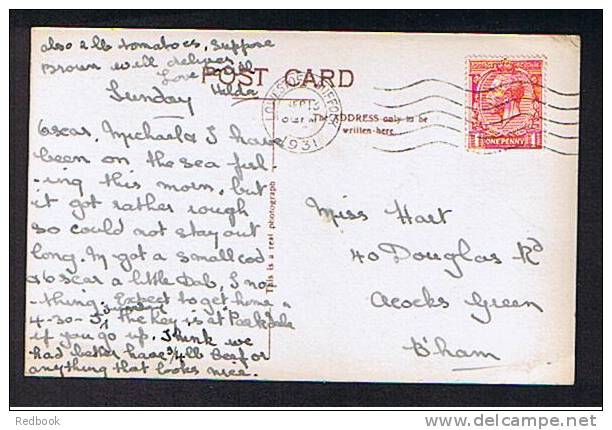 also 2 lb tomatoes, suppose
Brown will deliver
Love from all
Hilda
POST CARD
Sunday
Oscar, Michael & I have
been on the sea fish
-ing this morn, but
it got rather rough
so could not stay out
long. M got a small cod
Oscar a little Dab, I no
-thing. Expect to get home
4-30-5, The key is at Parkdale
if you go up. I think we
had better have 3/4 lb Beef or
anything that looks nice.
This is a real photograph
The ADDRESS only to be
written here.
1931
POSTAGE REVENUE
ONE PENNY
Miss Hart
40 Douglas Rd
Acocks Green
B'ham
Redbook
delcampe.net